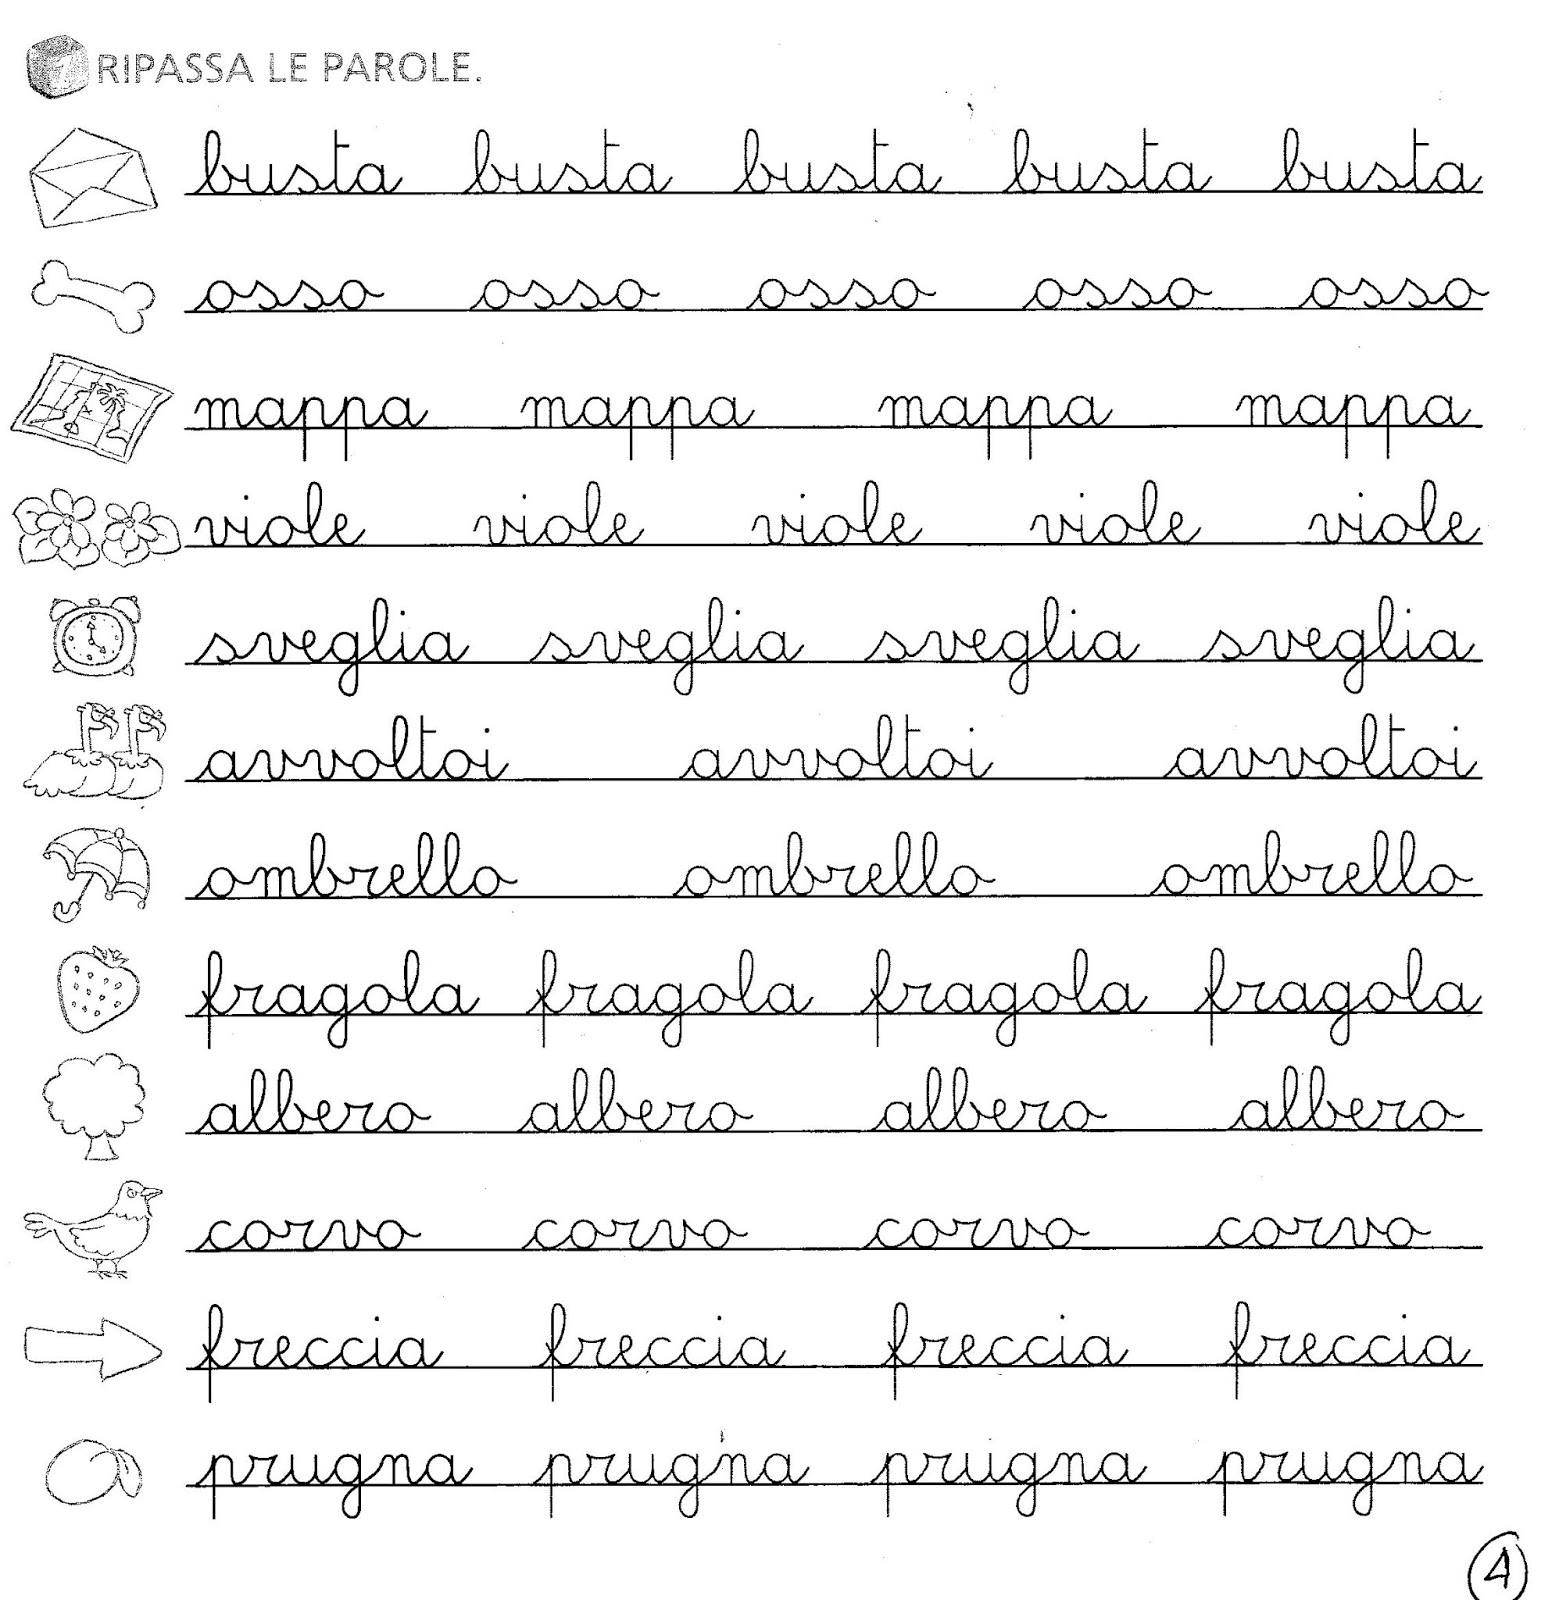 1 RIPASSA LE PAROLE.
busta busta busta busta busta
osso osso osso osso osso
mappa mappa mappa mappa
viole viole viole viole viole
sveglia sveglia sveglia sveglia
avvoltoi avvoltoi avvoltoi
ombrello ombrello ombrello
fragola fragola fragola fragola
albero albero albero albero
corvo corvo corvo corvo
freccia freccia freccia freccia
prugna prugna prugna prugna
4